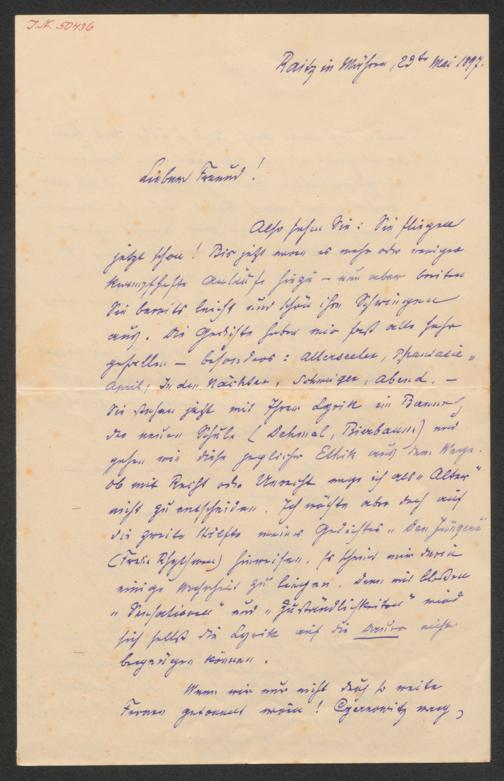 I.N. 50436
Raitz in Mähren, 29te Mai 1897.
Lieber Freund!
Also sehen Sie: Sie fliegen
jetzt schon! Bis jetzt waren es mehr oder weniger
krampfhafte Anläufe hiezu – nun aber breiten
Sie bereits leicht und schön ihre Schwingen
aus. Die Gedichte haben mir fast alle sehr
gefallen – besonders: Allerseelen, Phantasie-
April, In den Nächten, Schweigen, Abend. –
Sie stehen jetzt mit Ihrer Lyrik im Banne
der neuen Schule (Dehmel, Bierbaum) und
gehen wie diese jeglicher Ethik aus dem Wege.
Ob mit Recht oder Unrecht wage ich als "Alter"
nicht zu entscheiden. Ich möchte aber doch auf
die zweite Hälfte meines Gedichtes "Den Jüngern"
(Freie Rhythmen) hinweisen. Es scheint mir darin
einige Wahrheit zu liegen. Denn mit bloßen
"Sensationen" und "Zuständlichkeiten" wird
sich selbst die Lyrik auf die Dauer nicht
begnügen können.
Wenn wir nur nicht durch so weite
Fernen getrennt wären! Czernowitz